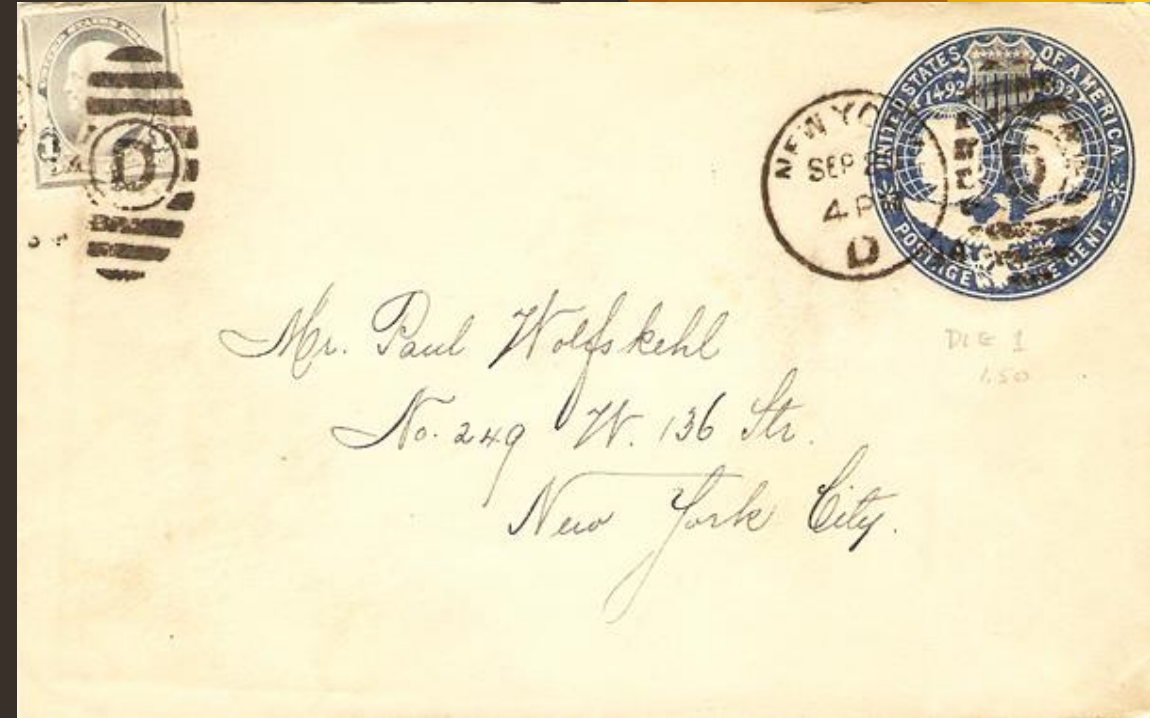 UNITED STATES OF AMERICA.
1492
POSTAGE ONE CENT.
NEW YO
SEP
4 P
D
D
Mr. Paul Wolfskehl
No. 249 W. 136 Str.
New York City.
DIE 1
1.50